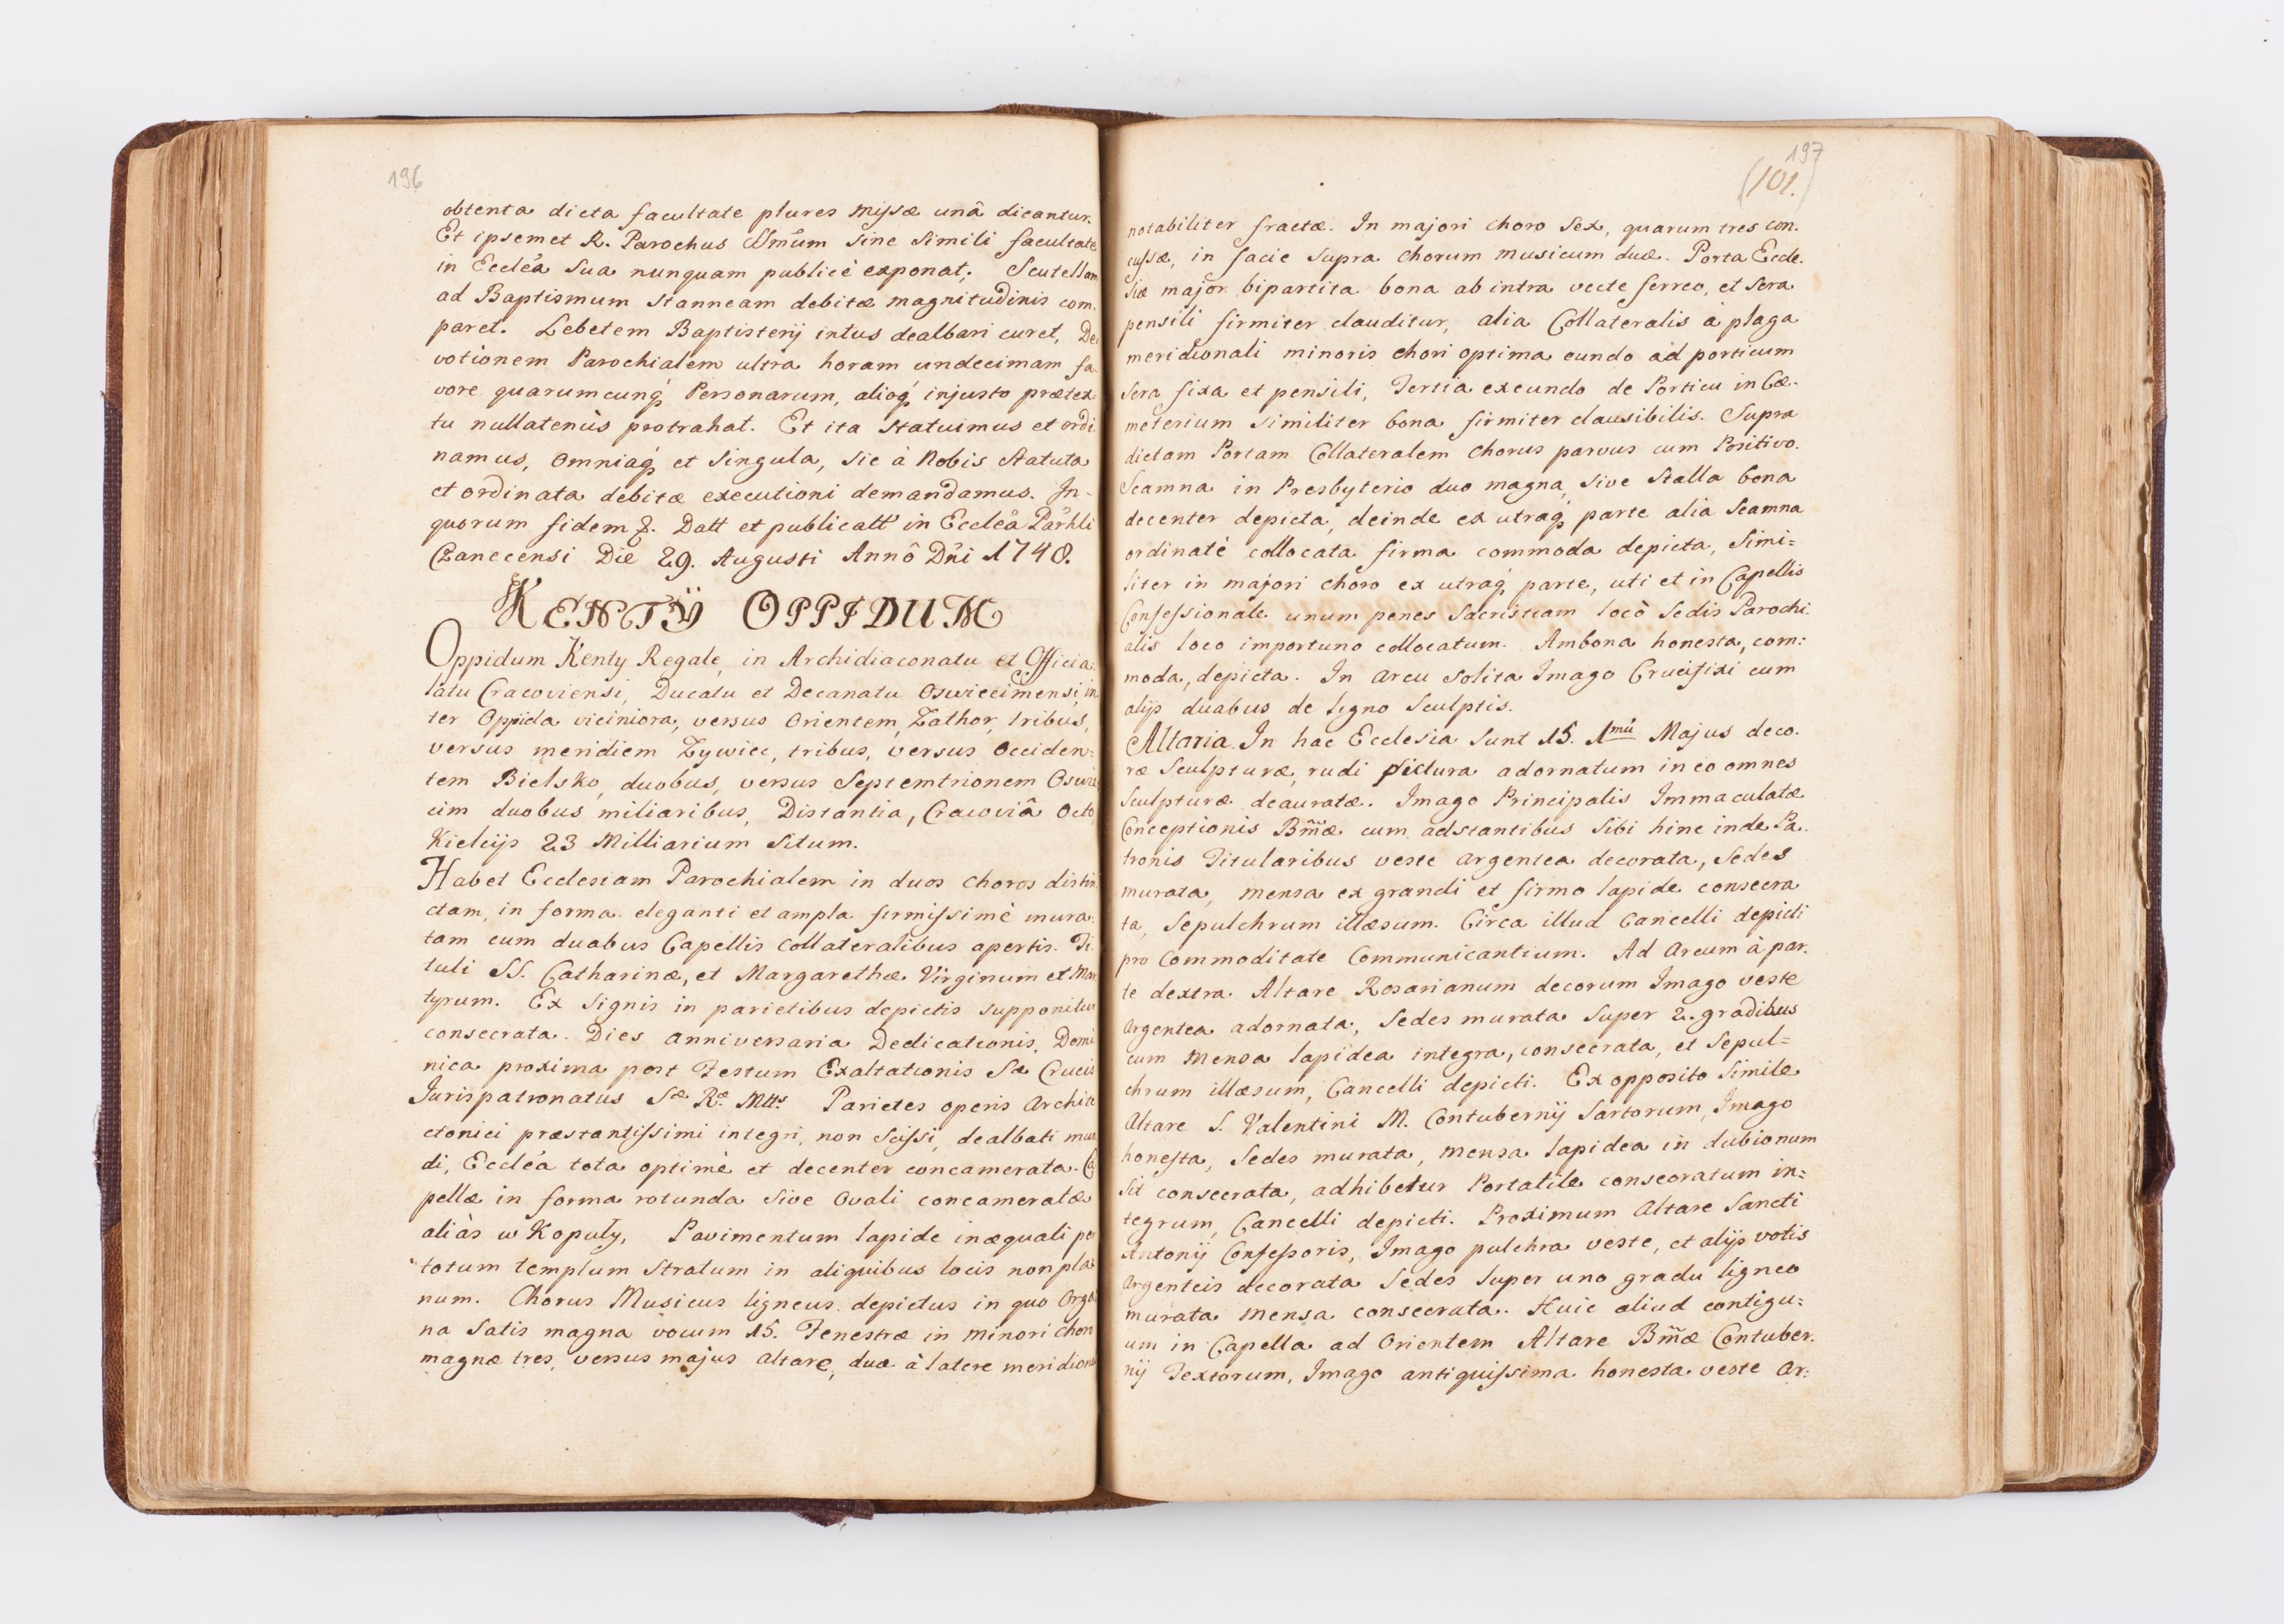 196
obtenta dicta facultate plures Missæ unâ dicantur.
Et ipsemet R. Parochus SSmūm sine simili facultate
in Eccleâ sua nunquam publicè exponat; Scutellam
ad Baptismum stanneam debitæ magnitudinis com-
paret. Lebetem Baptisterij intus dealbari curet, De
votionem Parochialem ultra horam undecimam fa-
vore quarumcunq́ Personarum, alioq́ injusto prætex
tu nullatenùs protrahat. Et ita statuimus et ordi
namus, omniaq́ et singula, sic à Nobis statuta
et ordinata debitæ executioni demandamus. In-
quorum fidem &. Datt et publicatt in Eccleâ Parhli
Czanecensi Die 29. Augusti Annô Dni 1748.
KENTŸ OPPIDUM
Oppidum Kenty Regale, in Archidiaconatu et Officia-
latu Cracoviensi, Ducatu et Decanatu Oswiecimensi, in
ter Oppida viciniora, versus Orientem, Zathor, tribus,
versus meridiem Zywiec, tribus, versus Occiden-
tem Bielsko, duobus, versus Septemtrionem Oswie
cim duobus miliaribus, Distantia, Cracoviâ Octo,
Kielcijs 23 Milliarium Situm.
Habet Ecclesiam Parochialem in duos choros distin
ctam, in forma eleganti et ampla firmissimè mura-
tam cum duabus Capellis Collateralibus apertis. Ti
tuli SS. Catharinæ, et Margarethæ Virginum et Mar
tyrum. Ex signis in parietibus depictis supponitur
consecrata. Dies anniversaria Dedicationis, Domi
nica proxima post Festum Exaltationis Sæ Crucis
Jurispatronatus Sæ Ræ Mttis Parietes operis Archite
ctonici præstantissimi integri, non scissi, dealbati mun
di, Eccleâ tota optimè et decenter concamerata. Ca
pellæ in forma rotunda sive Ovali concameratæ
aliàs w Kopuły, Pavimentum lapide inæquali per
totum templum stratum in aliquibus locis non pla
num. Chorus Musicus ligneus depictus in quo Orga
na satis magna vocum 15. Fenestræ in minori choro
magnæ tres, versus majus altare, duæ à latere meridiona
197
(101.)
notabiliter fractæ. In majori choro sex, quarum tres con-
cussæ, in facie supra chorum musicum duæ. Porta Eccle-
siæ major bipartita bona ab intra vecte ferreo, et sera
pensili firmiter clauditur, alia Collateralis à plaga
meridionali minoris chori optima eundo ad porticum
sera fixa et pensili, Tertia exeundo de Porticu in Cæ-
meterium similiter bona firmiter clausibilis. Supra
dictam Portam Collateralem chorus parvus cum Positivo.
Scamna in Presbyterio duo magna, sive Stalla bona
decenter depicta, deinde ex utraq́ parte alia Scamna
ordinatè collocata firma commoda depicta, simi=
liter in majori choro ex utraq́ parte, uti et in Capellis
Confessionale unum penes Sacristiam locô Sedis Parochi
alis loco importuno collocatum. Ambona honesta, com:
moda, depicta. In arcu solita Imago Crucifixi cum
alijs duabus de ligno sculptis.
Altaria In hac Ecclesia sunt 15. 1mũ Majus deco-
ræ Sculpturæ, rudi pictura adornatum in eo omnes
Sculpturæ deauratæ. Imago Principalis Immaculatæ
Conceptionis Bm̃æ cum adstantibus sibi hinc inde Pa-
tronis Titularibus veste argentea decorata, Sedes
murata, mensa ex grandi et firmo lapide consecra
ta, Sepulchrum illæsum. Circa illud Cancelli depicti
pro Commoditate Communicantium. Ad Arcum à par-
te dextra Altare Rosarianum decorum Imago veste
Argentea adornata, Sedes murata super 2. gradibus
cum Mensa lapidea integra, consecrata, et Sepul=
chrum illæsum, Cancelli depicti. Ex opposito simile
Altare S. Valentini M. Contubernij Sartorum, Imago
honesta, Sedes murata, mensa lapidea in dubio num
sit consecrata, adhibetur Portatile consecratum in=
tegrum, Cancelli depicti. Proximum Altare Sancti
Antonij Confessoris, Imago pulchra veste, et alijs votis
Argenteis decorata Sedes super uno gradu ligneo
murata mensa consecrata. Huic aliud contigu=
um in Capella ad Orientem Altare Bm̃æ Contuber-
nij Textorum, Imago antiquissima honesta veste Ar: